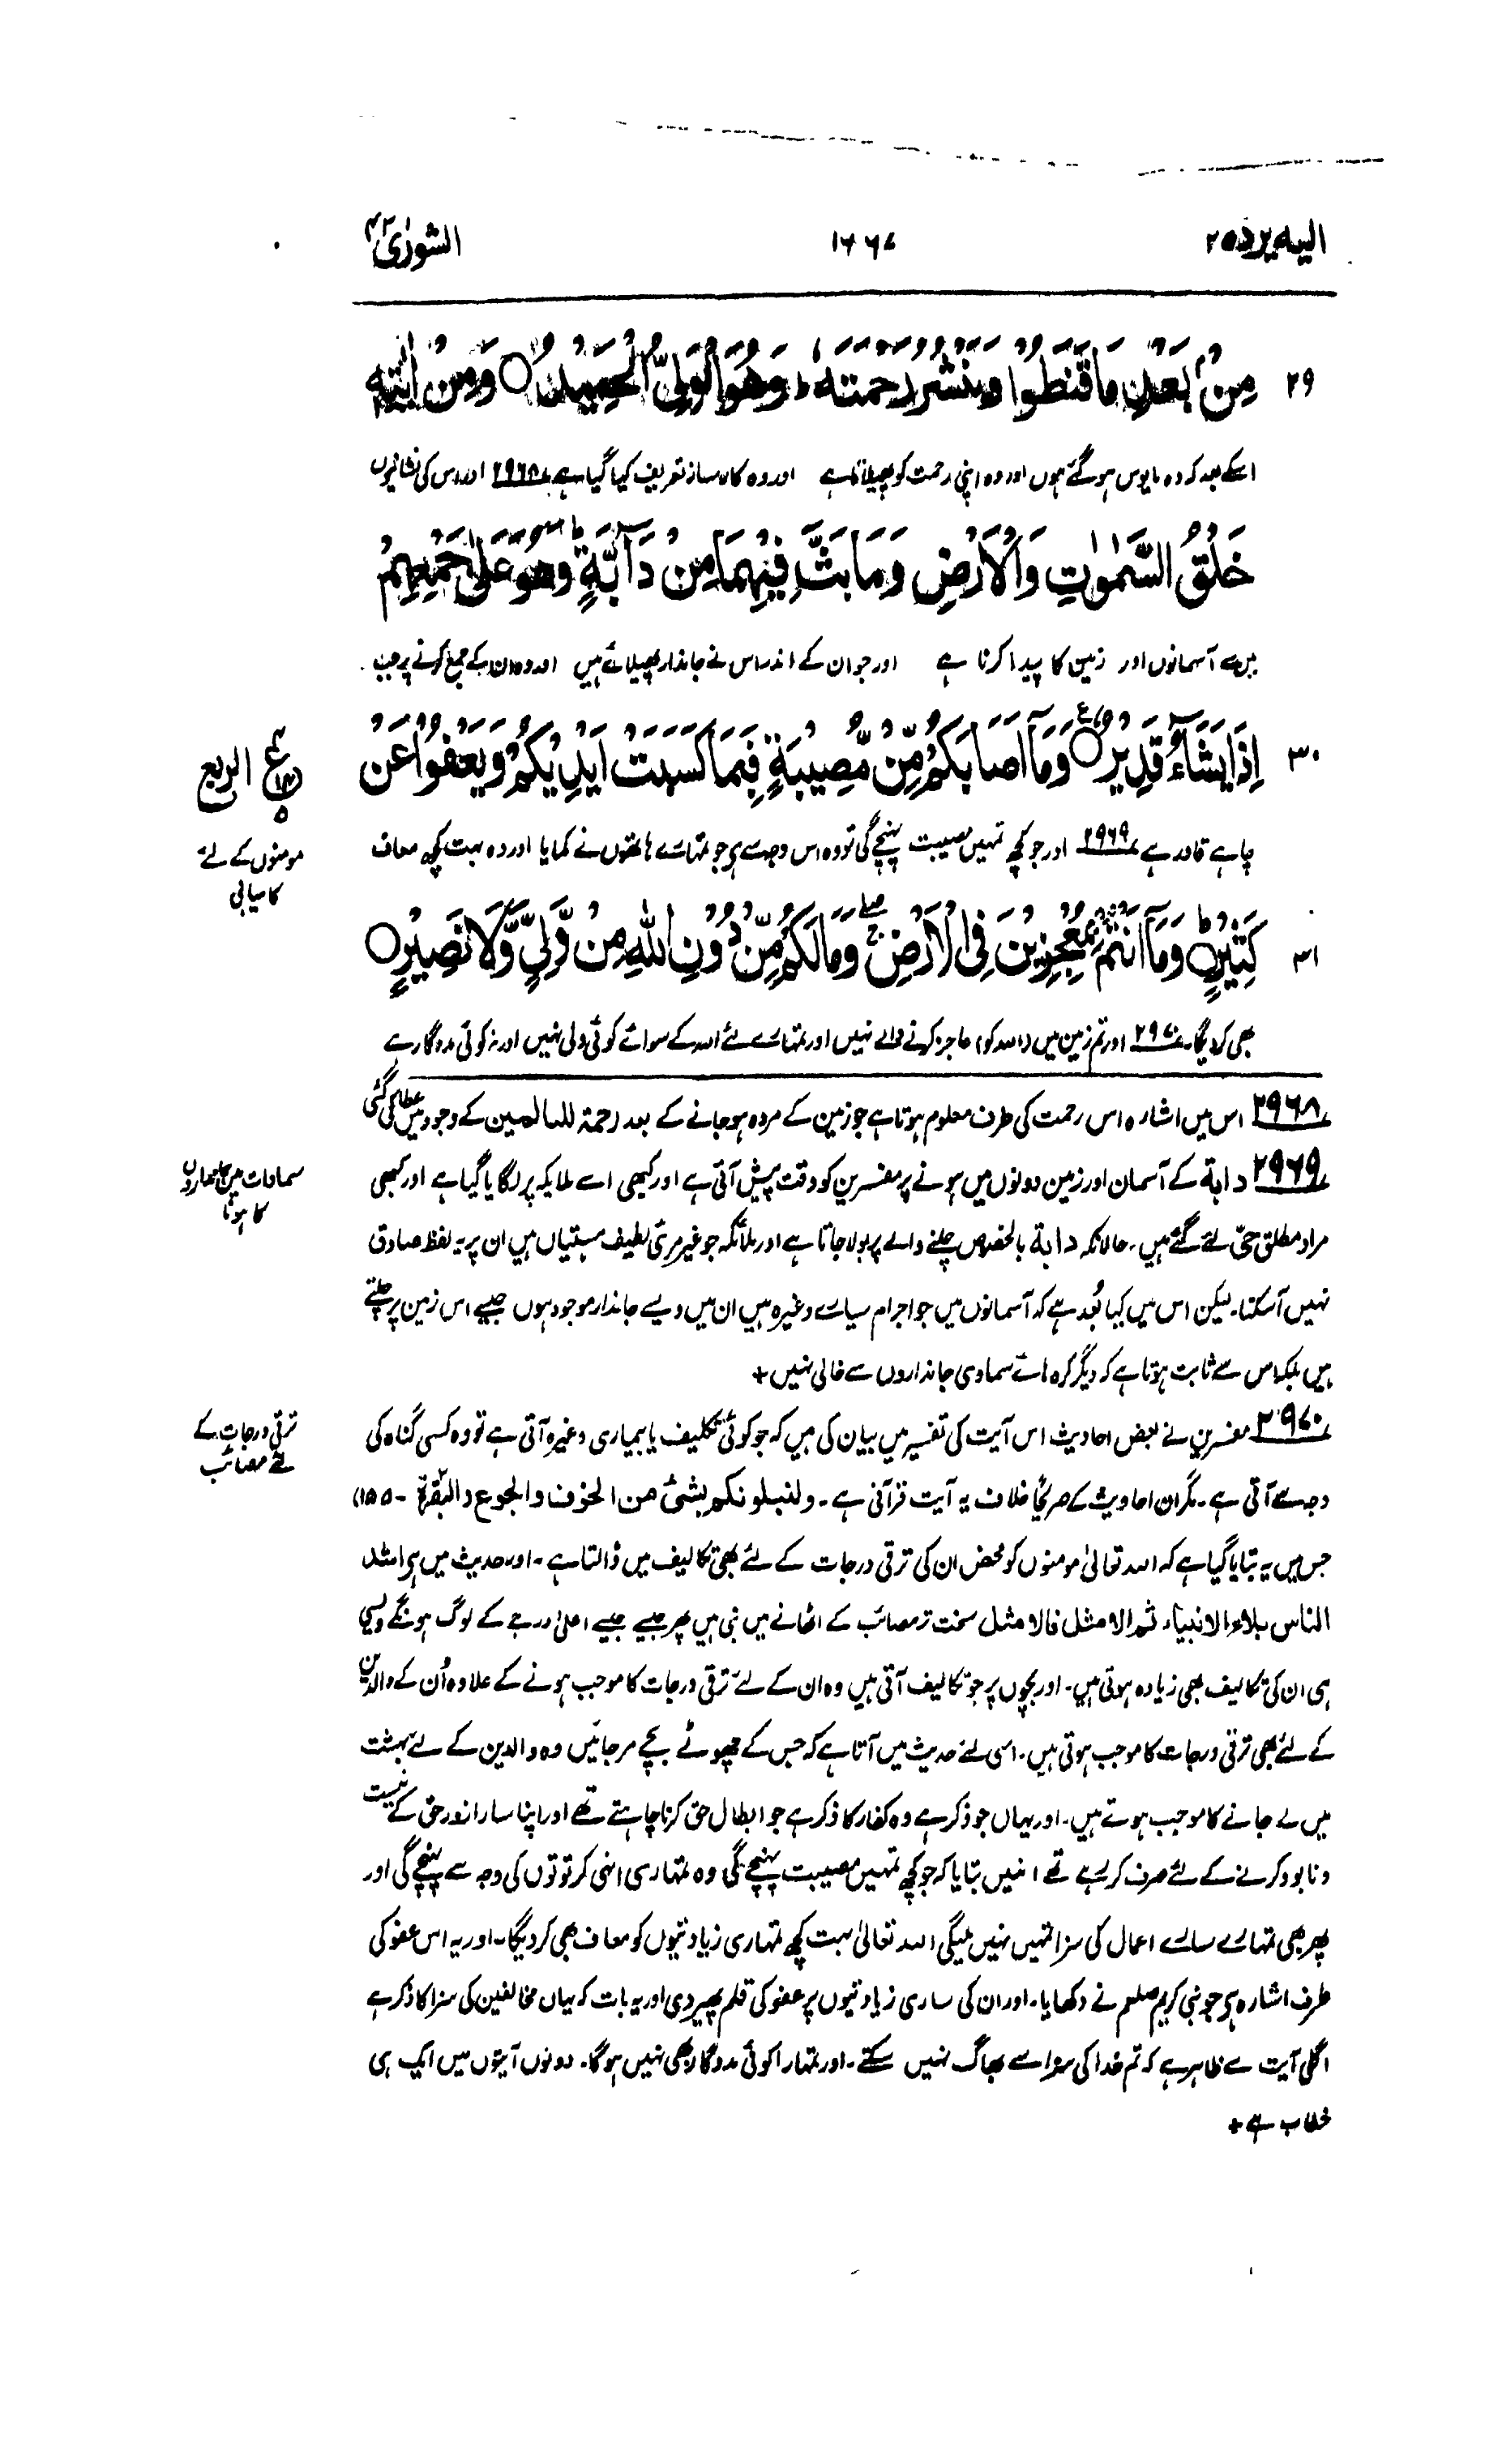 الیه یرد ۲۵ ۱۶۶۷ الشورٰی ۴۲
۲۹ مِنْۢ بَعْدِ مَا قَنَطُوْا وَیَنْشُرُ رَحْمَتَهٗ ؕ وَهُوَ الْوَلِیُّ الْحَمِیْدُ ○ وَمِنْ اٰیٰتِهٖ
اسکے بعد کہ وہ مایوس ہو گئے ہوں اور وہ اپنی رحمت کو پھیلاتا ہے اور وہ کارساز تعریف کیا گیا ہے ۲۹۶۸ اور اس کی نشانیوں
خَلْقُ السَّمٰوٰتِ وَالْاَرْضِ وَمَا بَثَّ فِیْهِمَا مِنْ دَآبَّةٍ ؕ وَهُوَ عَلٰی جَمْعِهِمْ
میں سے آسمانوں اور زمین کا پیدا کرنا ہے اور جو ان کے اندر اس نے جاندار پھیلائے ہیں اور وہ ان کے جمع کرنے پر جب
۳۰ اِذَا یَشَآءُ قَدِیْرٌ ○ ع وَمَاۤ اَصَابَكُمْ مِّنْ مُّصِیْبَةٍ فَبِمَا كَسَبَتْ اَیْدِیْكُمْ وَیَعْفُوْا عَنْ
ع الربع
چاہے قادر ہے ۲۹۶۹ اور جو کچھ تمہیں مصیبت پہنچے گی تو وہ اس وجہ سے ہی جو تمہارے ہاتھوں نے کمایا اور وہ بہت کچھ معاف
مومنوں کے لئے
کامیابی
۳۱ كَثِیْرٍ ؕ وَمَاۤ اَنْتُمْ بِمُعْجِزِیْنَ فِی الْاَرْضِ ۚ وَمَا لَكُمْ مِّنْ دُوْنِ اللّٰهِ مِنْ وَّلِیٍّ وَّلَا نَصِیْرٍ ○
بھی کردیگا۔ ۲۹۷۰ اور تم زمین میں (اللہ کو) عاجز کرنے والے نہیں اور تمہارے لئے اللہ کے سوائے کوئی ولی نہیں اور نہ کوئی مددگار ہے
۲۹۶۸ اس میں اشارہ اس رحمت کی طرف معلوم ہوتا ہے جو زمین کے مردہ ہو جانے کے بعد رحمۃ للعالمین کے وجود میں عطا کی گئی
۲۹۶۹ دابة کے آسمان اور زمین دونوں میں ہونے پر مفسرین کو دقت پیش آئی ہے اور کبھی اسے ملایکہ پر لگایا گیا ہے اور کبھی
سماوات میں جانداروں
کا ہونا
مراد مطلق حیّ لئے گئے ہیں۔ حالانکہ دابة بالخصوص چلنے والے پر بولا جاتا ہے اور ملائکہ جو غیر مرئی لطیف ہستیاں ہیں ان پر یہ لفظ صادق
نہیں آسکتا۔ لیکن اس میں کیا بُعد ہے کہ آسمانوں میں جو اجرام سیارے وغیرہ ہیں ان میں ویسے جاندار موجود ہوں جیسے اس زمین پر چلتے
ہیں بلکہ اس سے ثابت ہوتا ہے کہ دیگر کرہ ہائے سماوی جانداروں سے خالی نہیں +
۲۹۷۰ مفسرین نے بعض احادیث اس آیت کی تفسیر میں بیان کی ہیں کہ جو کوئی تکلیف یا بیماری وغیرہ آتی ہے تو وہ کسی گناہ کی
ترقی درجات کے
لئے مصائب
وجہ سے آتی ہے۔ مگر ان احادیث کے صریحًا خلاف یہ آیت قرآنی ہے۔ ولنبلونكم بشئ من الخوف والجوع (البقرة - ۱۵۵)
جس میں یہ بتایا گیا ہے کہ اللہ تعالیٰ مومنوں کو محض ان کی ترقی درجات کے لئے بھی تکالیف میں ڈالتا ہے۔ اور حدیث میں ہی اشد
الناس بلاء الانبیاء ثم الامثل فالامثل سخت تر مصائب کے اٹھانے میں نبی ہیں پھر جیسے جیسے اعلیٰ درجے کے لوگ ہونگے ویسی
ہی ان کی تکالیف بھی زیادہ ہوتی ہیں۔ اور بچوں پر جو تکالیف آتی ہیں وہ ان کے لئے ترقی درجات کا موجب ہونے کے علاوہ اُن کے والدین
کے لئے بھی ترقی درجات کا موجب ہوتی ہیں۔ اسی لئے حدیث میں آتا ہے کہ جس کے چھوٹے بچے مرجائیں وہ والدین کے لئے بہشت
میں لے جانے کا موجب ہوتے ہیں۔ اور یہاں جو ذکر ہے وہ کفار کا ذکر ہے جو ابطال حق کرنا چاہتے تھے اور اپنا سارا زور حق کے نیست
ونابود کرنے کے لئے صرف کر رہے تھے انہیں بتایا کہ جو کچھ تمہیں مصیبت پہنچے گی وہ تمہاری اپنی کرتوتوں کی وجہ سے پہنچے گی اور
پھر بھی تمہارے سارے اعمال کی سزا تمہیں نہیں ملیگی اللہ تعالیٰ بہت کچھ تمہاری زیادتیوں کو معاف بھی کردیگا۔ اور یہ اس عفو کی
طرف اشارہ ہی جو نبی کریم صلعم نے دکھایا۔ اور ان کی ساری زیادتیوں پر عفو کی قلم پھیر دی اور یہ بات کہ یہاں مخالفین کی سزا کا ذکر ہے
اگلی آیت سے ظاہر ہے کہ تم خدا کی سزا سے بھاگ نہیں سکتے۔ اور تمہارا کوئی مددگار بھی نہیں ہوگا۔ دونوں آیتوں میں ایک ہی
خطاب ہے +